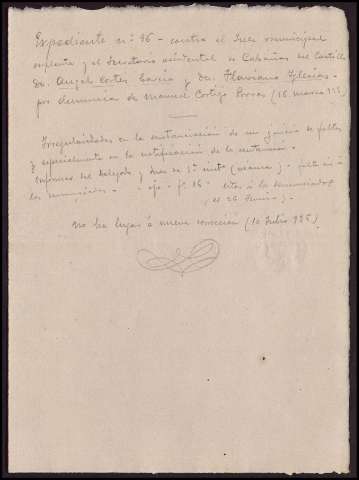 Expediente nº 46 - contra el Juez municipal
suplente y el Secretario accidental de Cabañas del Castillo
Dn. Angel Cortés García y Dn. Flaviano Iglesias -
por denuncia de Manuel Cortijo Porras (16 marzo 925)
Irregularidades en la sustanciación de un juicio de faltas
y especialmente en la notificación de la sentencia.
Informes del Delegado y Juez de 1ª inst.
los
fº 16 - citas á la denunciados
26 Junio) -
No ha lugar á nueva corrección (10 Julio 925)